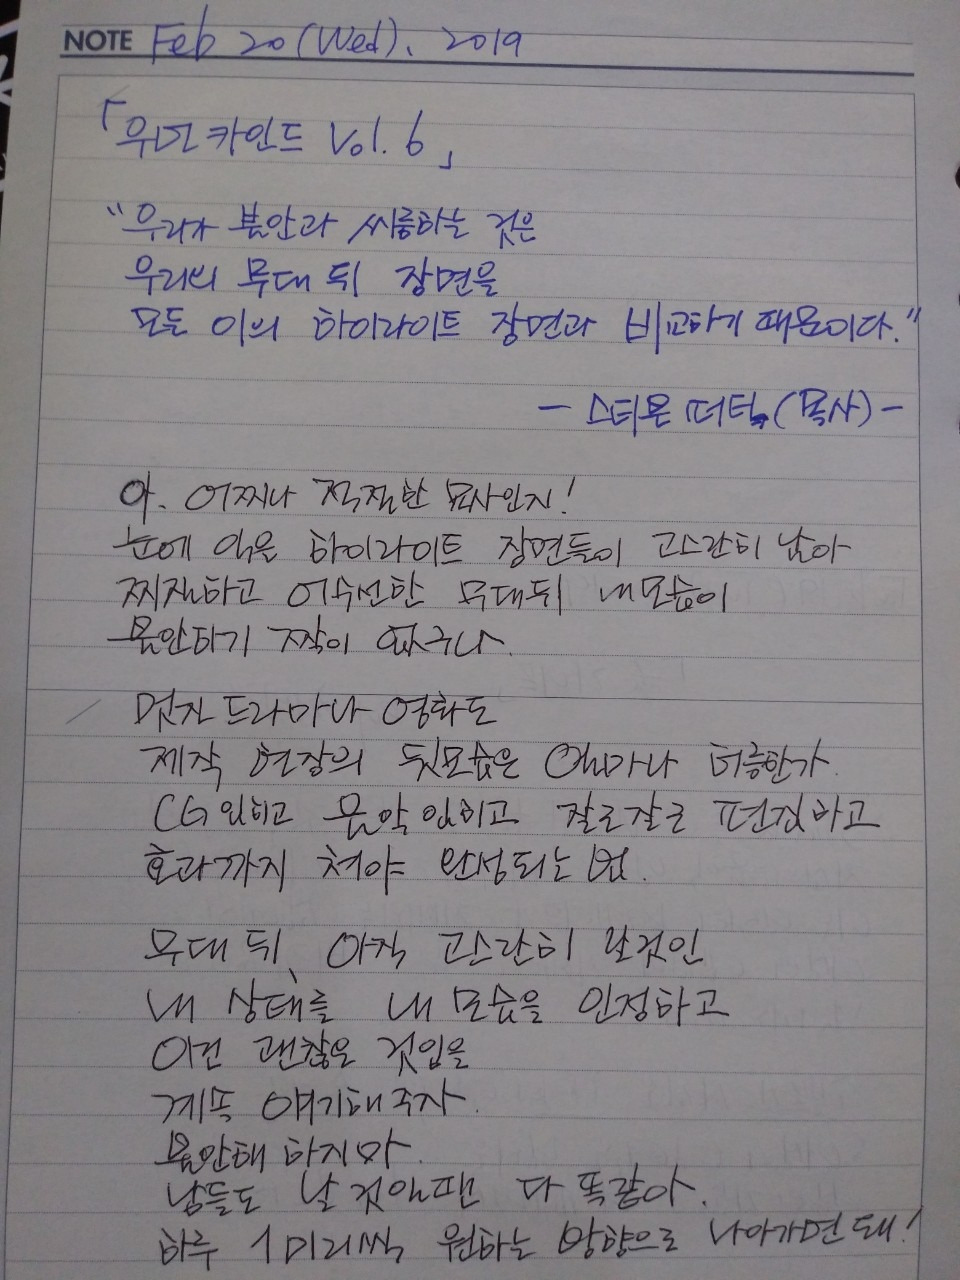 NOTE Feb 20 (Wed). 2019
「우먼카인드 Vol. 6」
“우리가 불안과 씨름하는 것은
우리의 무대 뒤 장면을
모든 이의 하이라이트 장면과 비교하기 때문이다.”
- 스티븐 퍼틱 (목사) -
아. 어찌나 적절한 묘사인지!
눈에 익은 하이라이트 장면들이 고스란히 남아
찌질하고 어수선한 무대뒤 내모습이
불안하기 짝이 없구나.
멋진 드라마나 영화도
제작 현장의 뒷모습은 얼마나 허름한가.
CG 입히고 음악 입히고 잘르잘르 편집하고
효과까지 쳐야 완성되는 법.
무대 뒤, 아직 고스란히 날것인
내 상태를 내 모습을 인정하고
이건 괜찮은 것임을
계속 얘기해주자.
불안해 하지마.
남들도 날 것일땐 다 똑같아.
하루 1미리씩 원하는 방향으로 나아가면 돼!